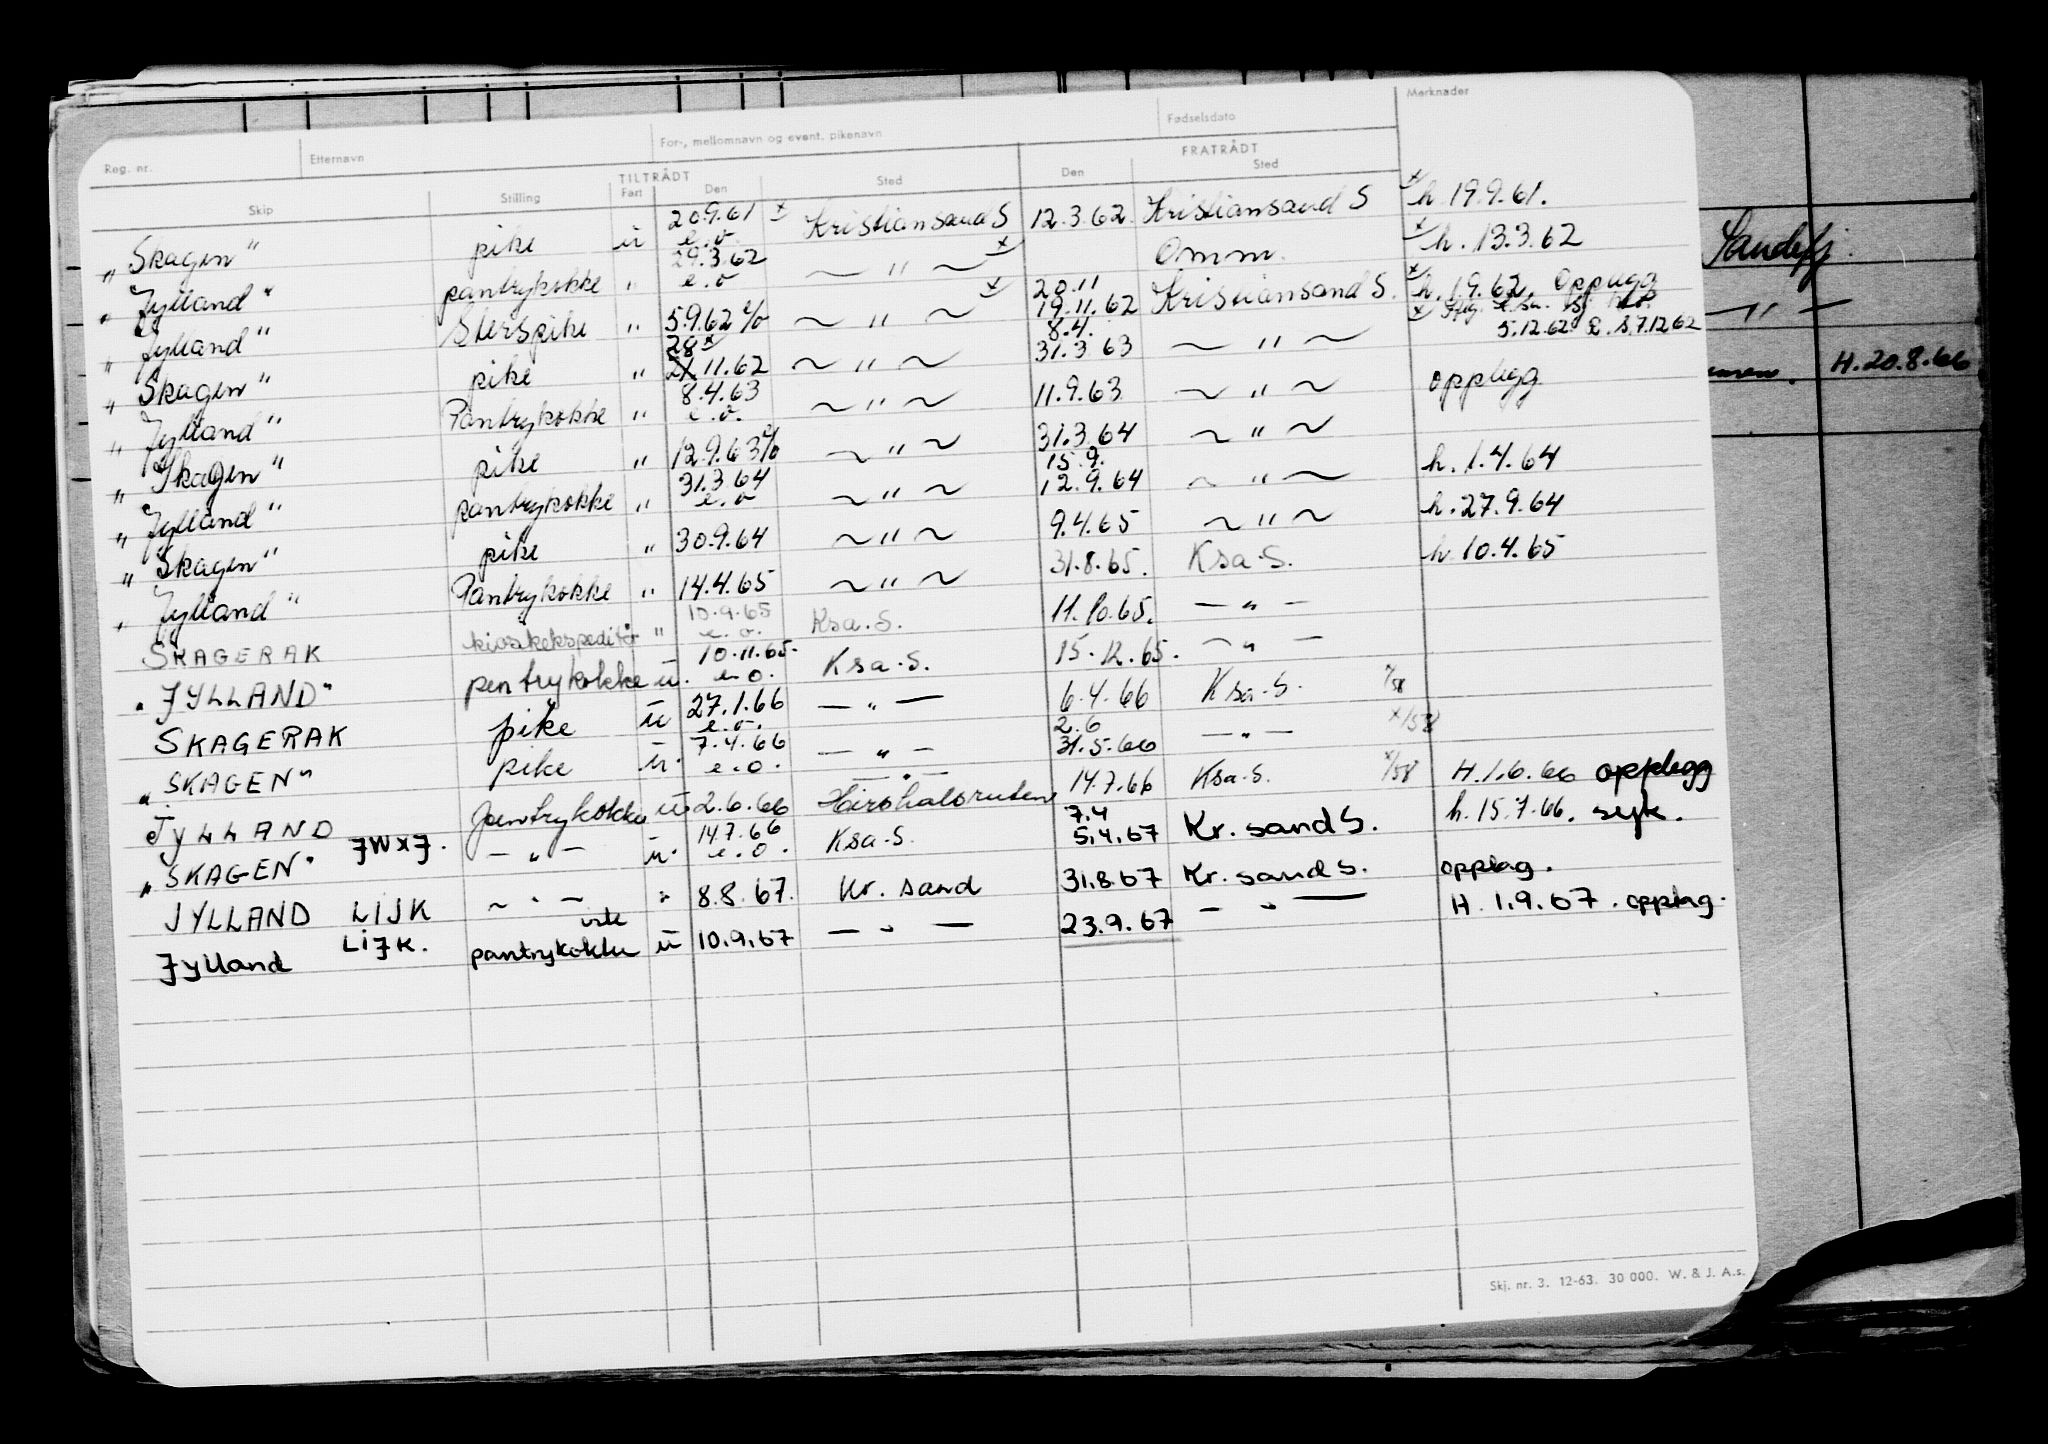 Reg. nr. Etternavn For-, mellomnavn og event. pikenavn Fødselsdato Merknader
TILTRÅDT FRATRÅDT
Skip Stilling Fart Den Sted Den Sted
„ Skagen" pike u 20.9.61 e.o. x Kristiansand S 12.3.62 Kristiansand S x h 19.9.61.
„ Jylland" pantrykokke " 29.3.62 e.o ~ " ~ x Omm. x h. 13.3.62
„ Jylland" " 5.9.62 e/o ~ " ~ x 20.11 19.11.62 Kristiansand S. x h. 1.9.62. Opplegg
„ Skagen" pike " 28 x 11.62 ~ " ~ 8.4. 31.3 63 ~ " ~ x 5.12.62 7.12.62
„ Jylland" Pantrykokke " 8.4.63 e.o. ~ " ~ 11.9.63 ~ " ~ opplegg
„ Skagen" pike " 12.9.63 e/o ~ " ~ 31.3.64 ~ " ~
„ Jylland" pantrykokke " 31.3.64 e.o ~ " ~ 15.9. 12.9.64 ~ " ~ h. 1.4.64
„ Skagen" pike " 30.9.64 ~ " ~ 9.4.65 ~ " ~ h. 27.9.64
„ Jylland" Pantrykokke " 14.4.65 ~ " ~ 31.8.65. Ksa-S. h. 10.4.65
SKAGERAK kioskekspeditør " 10.9.65 e.o. Ksa.S. 11.10.65. — " —
„ JYLLAND" pentrykokke u. 10.11.65. e.o. Ksa.S. 15.12.65. — " —
SKAGERAK pike u 27.1.66 e.o. — " — 6.4.66 Ksa-S. x/58
„ SKAGEN" pike u. 7.4.66 e.o. — " — 2.6 31.5.66 — " — x/58
JYLLAND pentrykokke u 2.6.66 Hirshalsruten 14.7.66 Ksa-S. x/58 H. 1.6.66 opplegg
„ SKAGEN" JWXJ. — " — u. 14.7.66 e.o. Ksa-S. 7.4 5.4.67 Kr. sand S. h. 15.7.66. syk.
JYLLAND LIJK ~ " — " 8.8.67. Kr. sand 31.8.67 Kr. sand S. opplag.
Jylland LIJK. pantrykokke u 10.9.67 — " — 23.9.67 — " — H. 1.9.67. opplag.
Sandefj.
— " —
H. 20.8.66
Skj. nr. 3. 12-63. 30 000. W. & J. A.s.